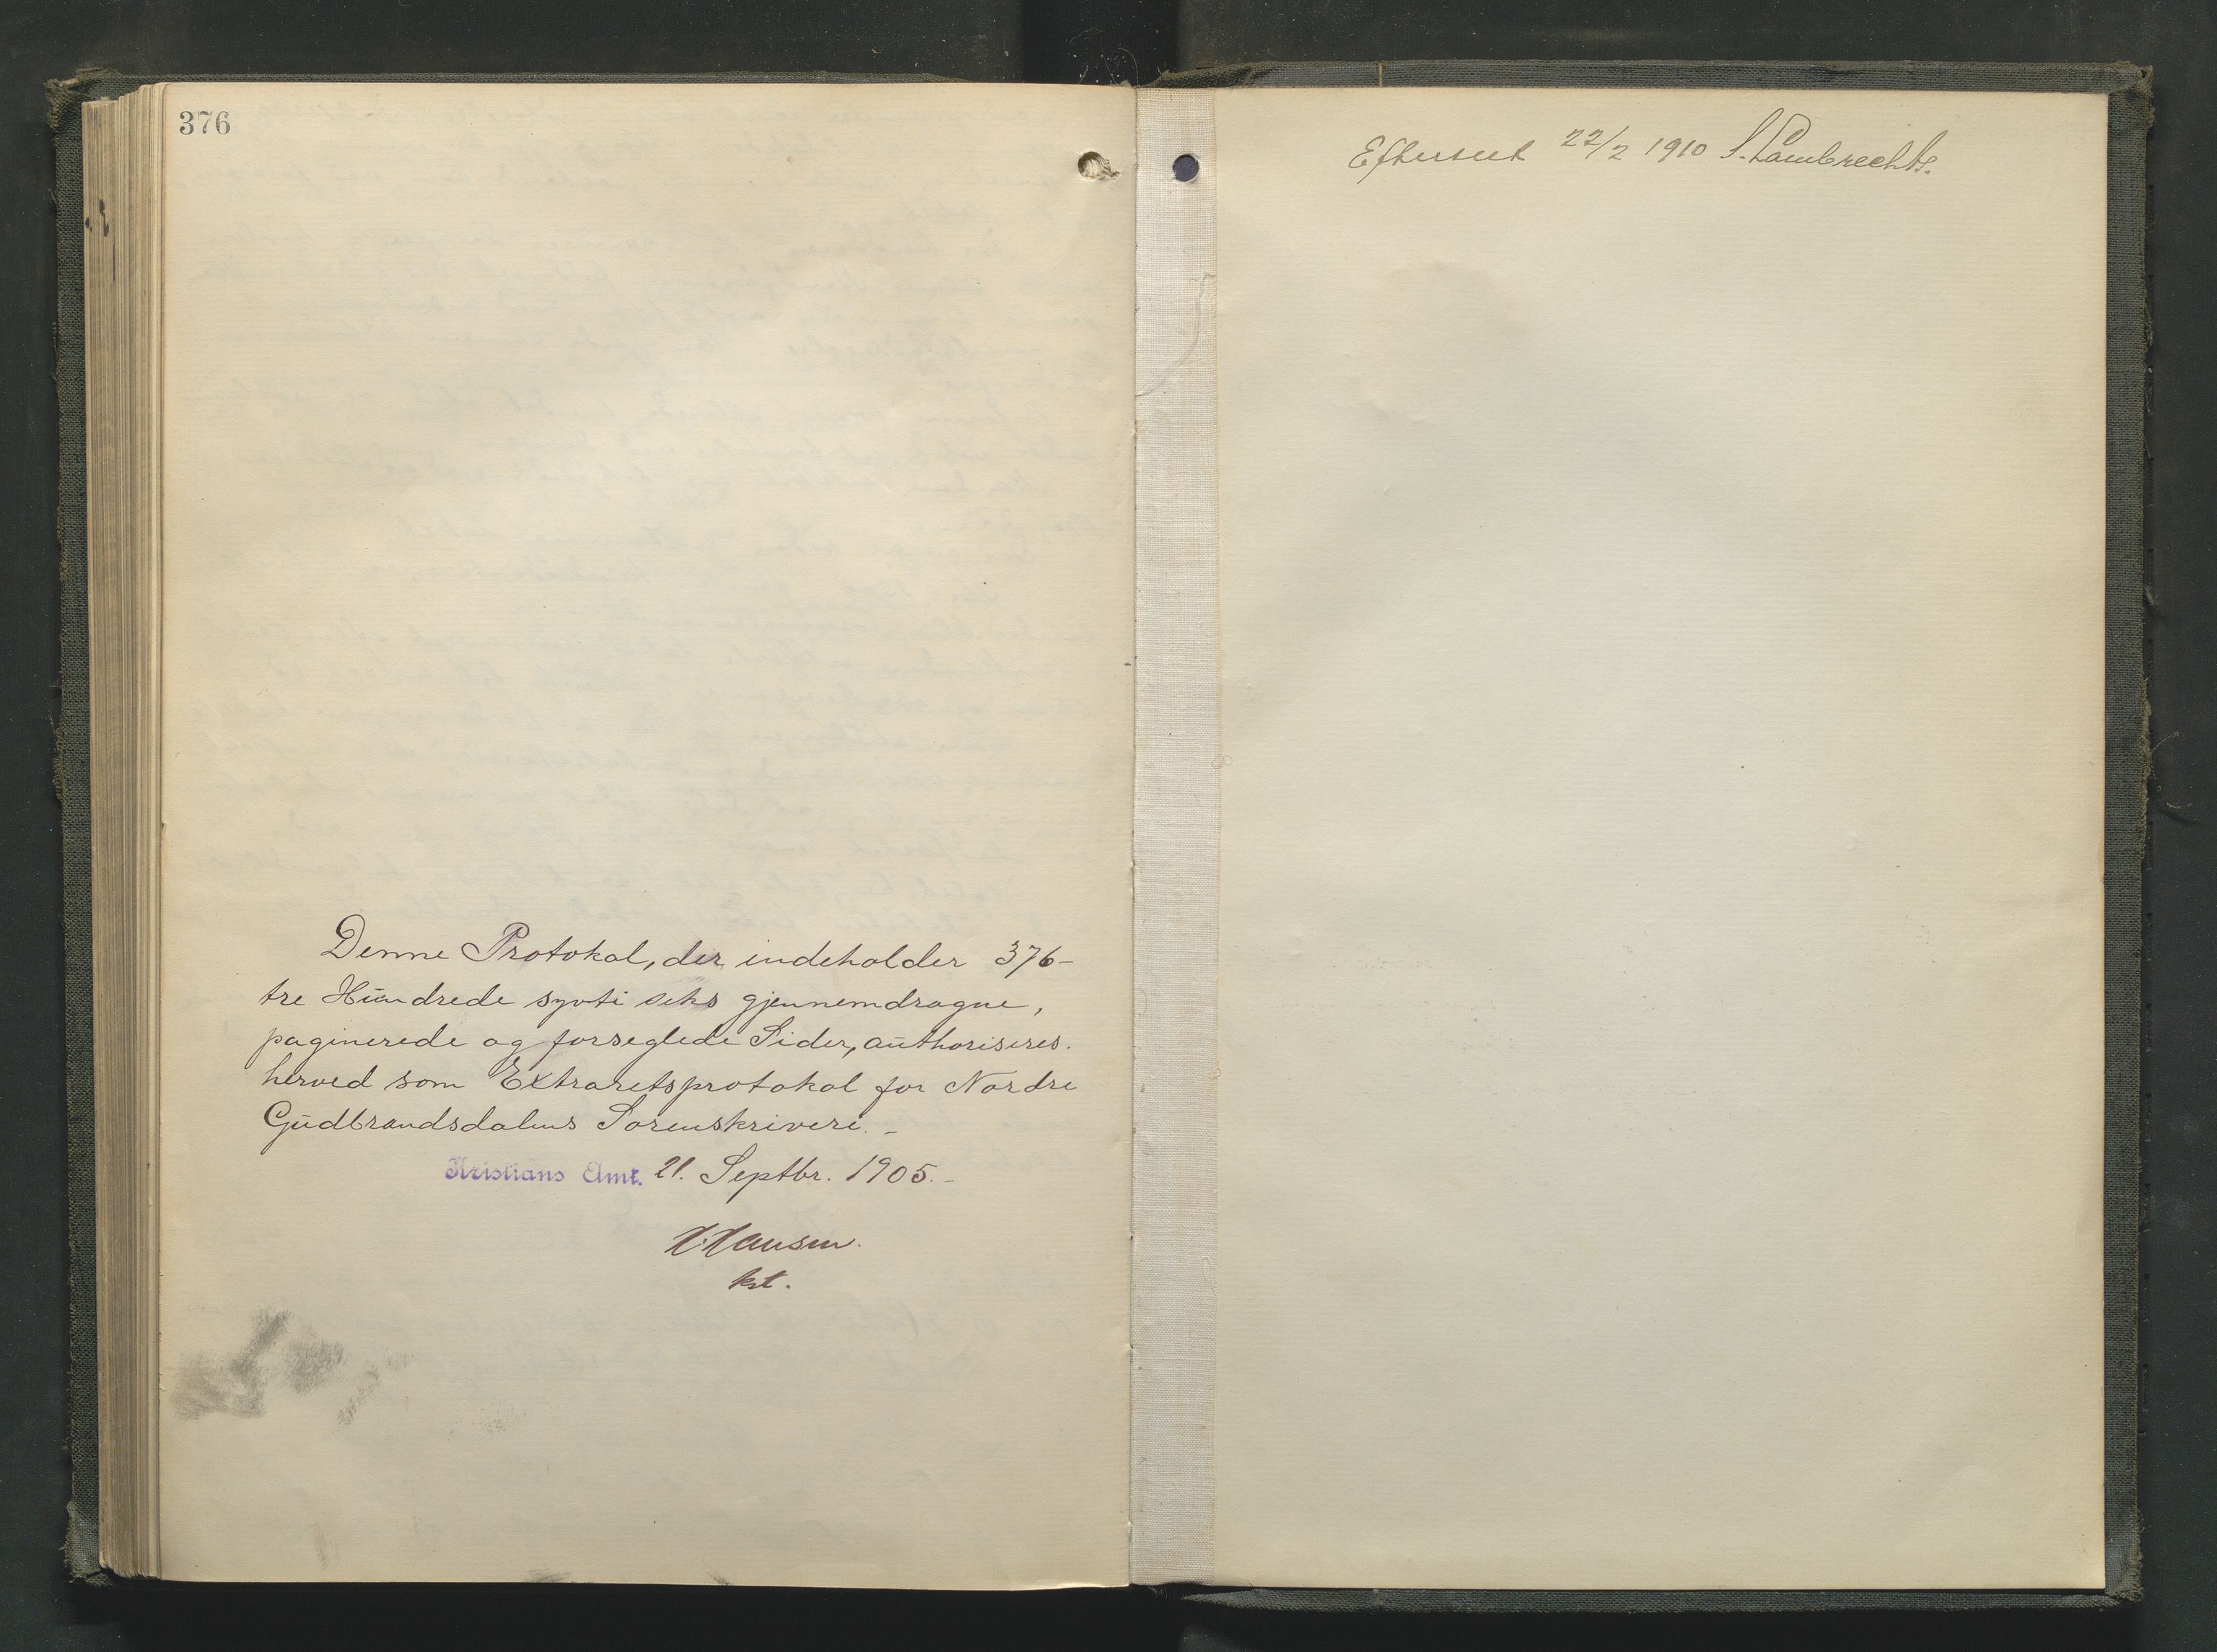 376
Denne Protokol, der indeholder 376-
tre Hundrede sytti seks gjennemdragne,
paginerede og forseglede Sider, authoriseres.
herved som Extraretsprotokol for Nordre
Gudbrandsdalens Sorenskriveri. -
Kristians Amt. 21. Septbr. 1905. -
Hansen.
kst.
Efterseet 22/2 1910 S. Lambrechts.